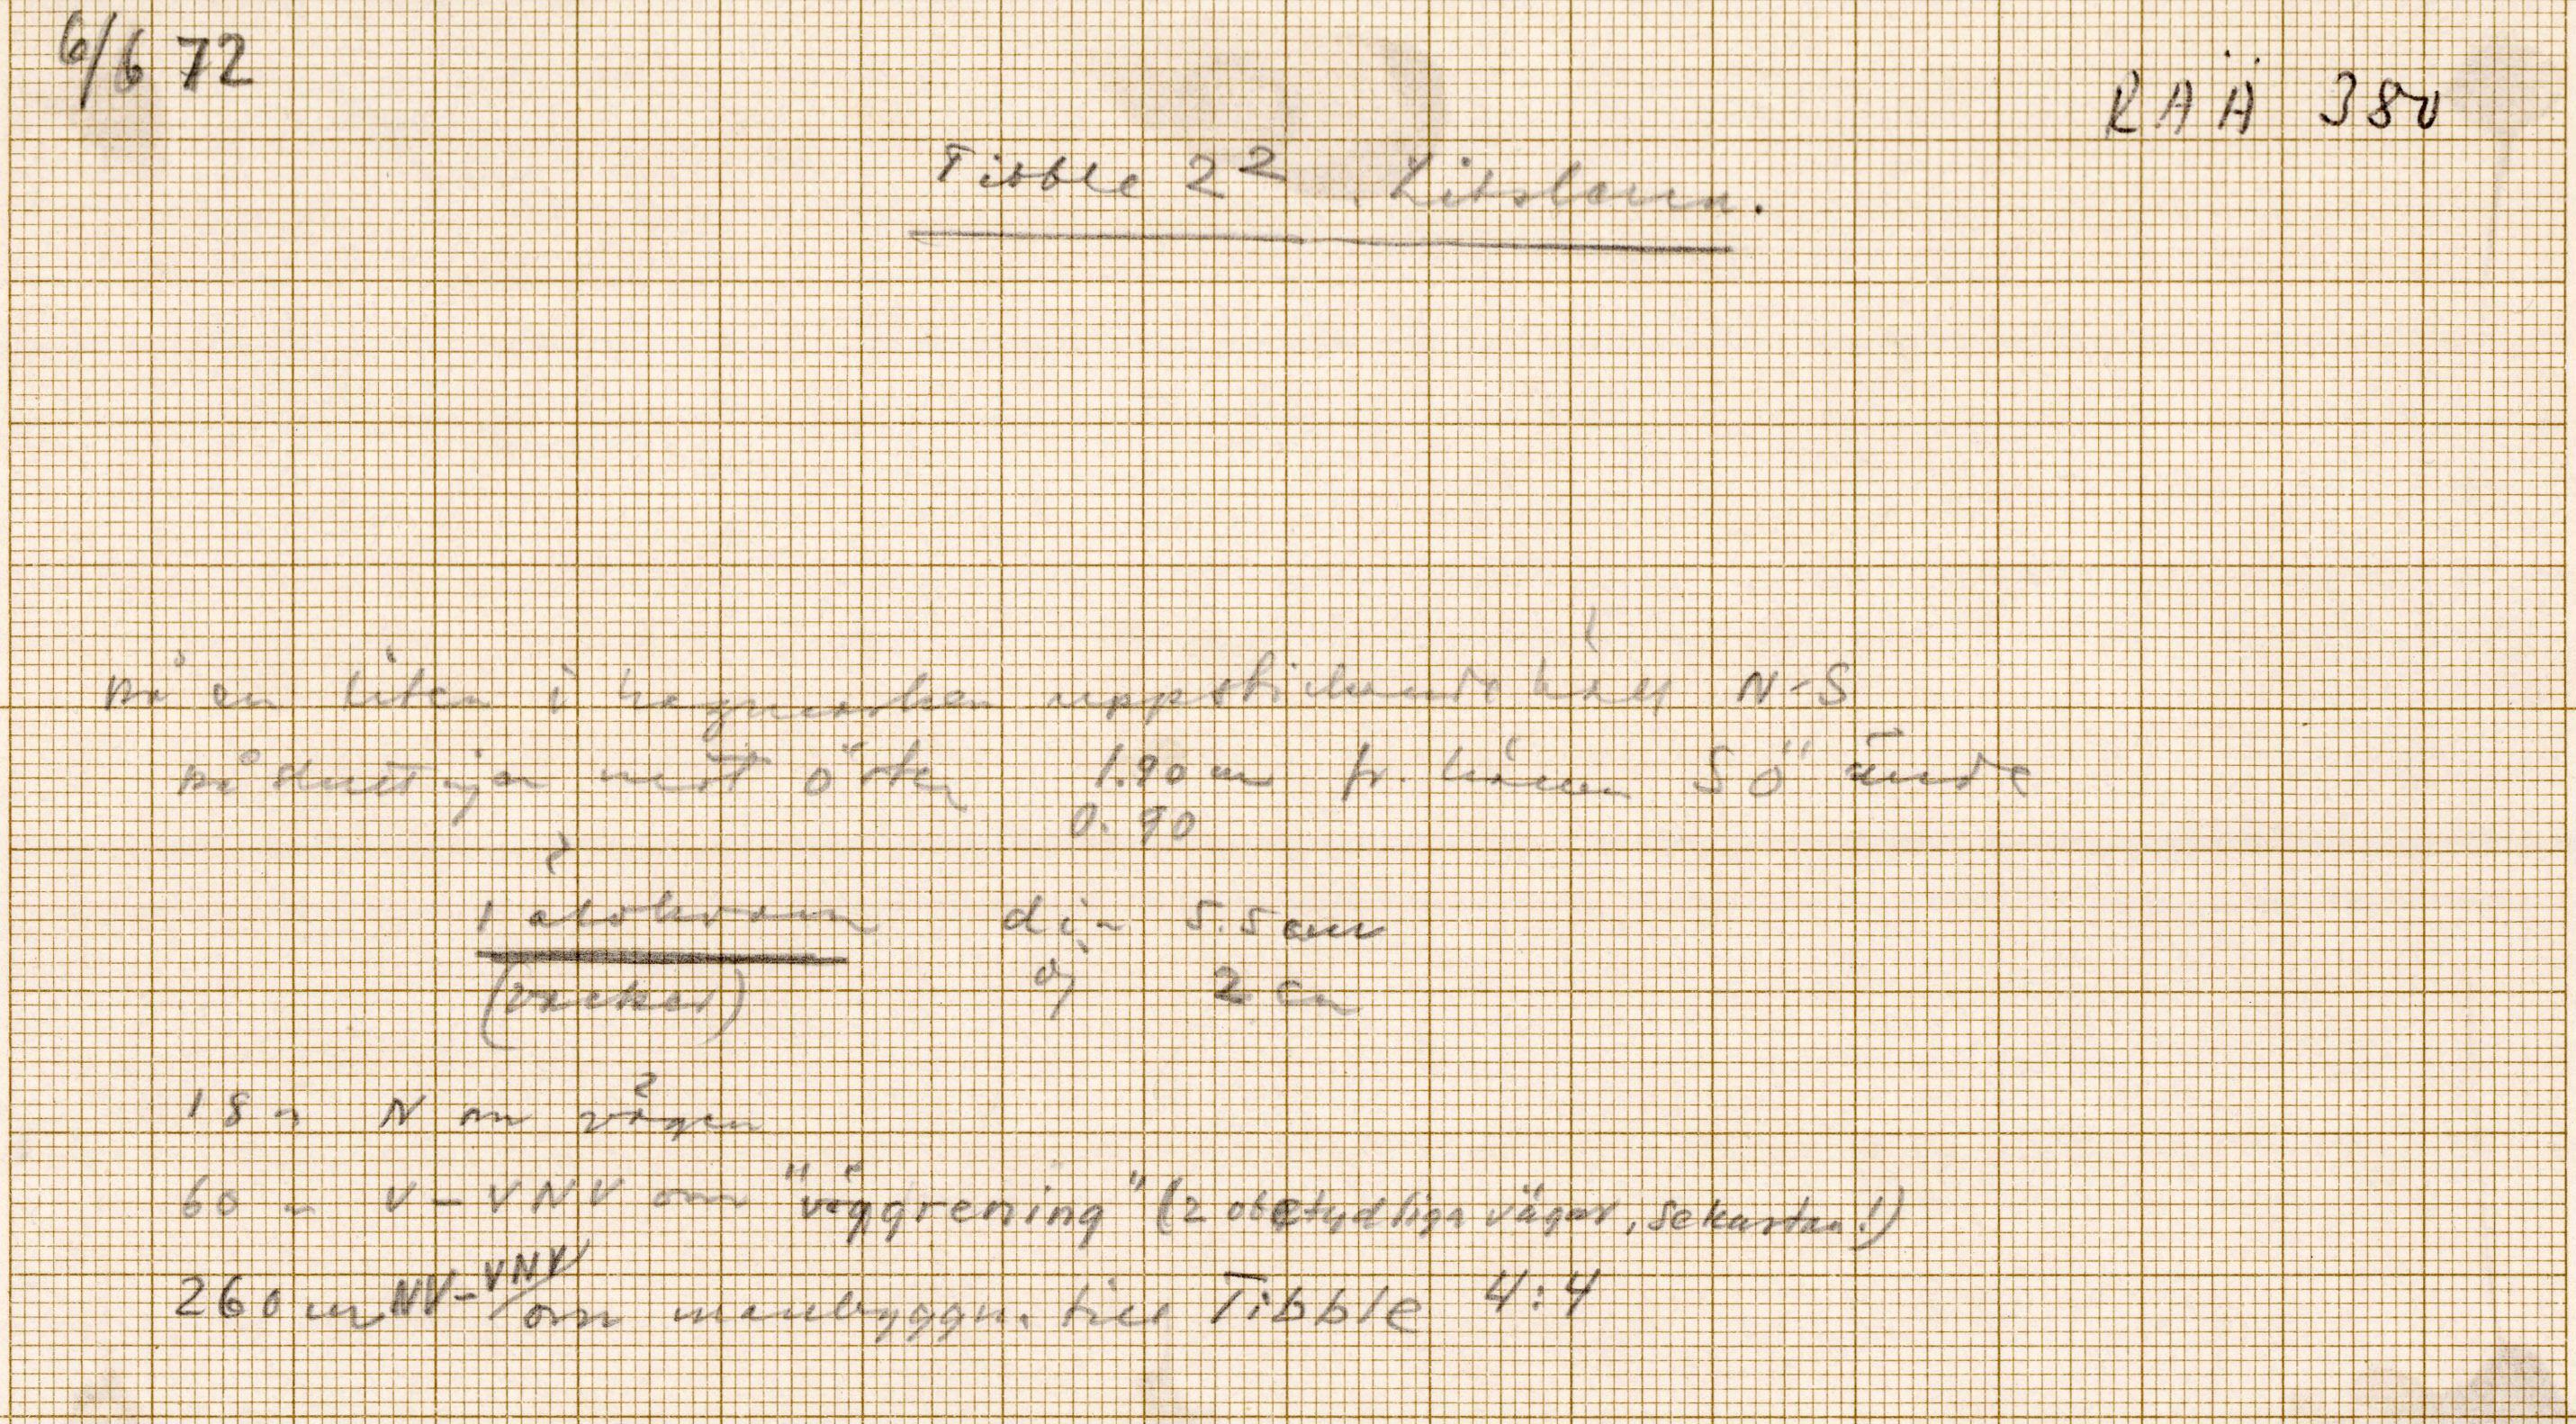 6/6 72
RAÄ 380
Tibble 2² Litslena.
på en liten i hagmarken uppstickande häll N-S
på sluttningen mot öster 1.90 m fr. hällens SÖ ände
0.90
1 älvkvarn di- 5.5 cm
(vacker) dj 2 cm
18 m N om vägen
60 m V-VNV om "väggrening" (2 obetydliga vägar, sekartan!)
260 m NV-VNV om manbyggn. till Tibble 4:4